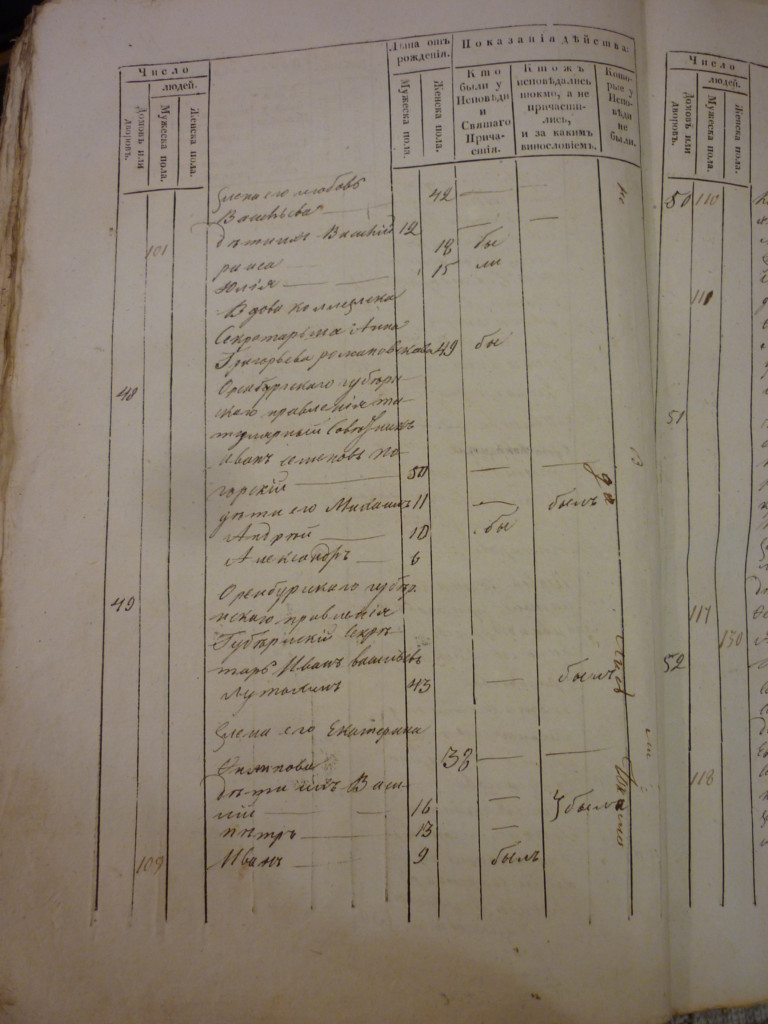 Число
людей.
Домовъ или дворовъ.
Мужеска пола.
Женска пола.
Лѣта отъ рожденія.
Мужеска пола.
Женска пола.
Показанія дѣйства:
Кто были у Исповѣди и Святаго Причастія.
Ктожъ исповѣдались токмо, а не причастились, и за какимъ винословіемъ.
Которые у Исповѣди не были.
Жена его Любовь 42
Васильева
101 дѣти ихъ Василій 12
раиса 18 бы
Юлія 15 ли
Вдова коллежска
Секретарьша Анна
Григорьева романовская 49 бы
48 Оренбургскаго губерн
скаго правленія ти
тулярный Совѣтникъ
Иванъ семеновъ По
горскій 50 былъ
дѣти его Михаилъ 11
Андрей 10 бы
Александръ 6
49 Оренбургскаго губер
нскаго правленія
Губернскій Секре
тарь Иванъ васильевъ
43 былъ
Жена его Екатерина
38
дѣти ихъ Васи
лій 16 были
петръ 13
109 Иванъ 9 былъ
Число
людей.
Домовъ или дворовъ.
Мужеска пола.
Женска пола.
50 110
111
51
117
130
52
118